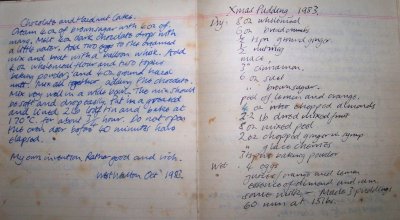 Chocolate and Hazelnut Cake.
Cream 6 oz of brown sugar with 6 oz of
marg. Melt 6 oz dark chocolate drops with
a little water. Add two eggs to the creamed
mix and beat with a balloon whisk. Add
6 oz wholemeal flour and two
baking powder, and 4 oz ground hazel
nuts. Mix all together, adding the chocolate.
Mix very well in a wide bowl. The mix should
be soft and drop easily. Put in a greased
and lined 2 lb loaf tin and bake at
170°C for about 1 hour. Do not open
the oven door before 40 minutes have
elapsed.
My own invention. Rather good and rich.
Oct 1983.
Xmas Pudding 1983.
Dry: 8 oz wholemeal
6 oz breadcrumbs
½ tspn ground ginger
½ nutmeg
mace
" cinnamon.
6 oz suet
" brown sugar.
peel of lemon and orange.
4 oz most chopped almonds
2 lb dried mixed fruit
8 oz mixed peel
2 oz chopped ginger in syrup
" glace cherries
baking powder
Wet: 4 eggs
juice of orange and lemon
essence of almond and rum
some milk - Made 3 puddings
60 min at 15 lbs.